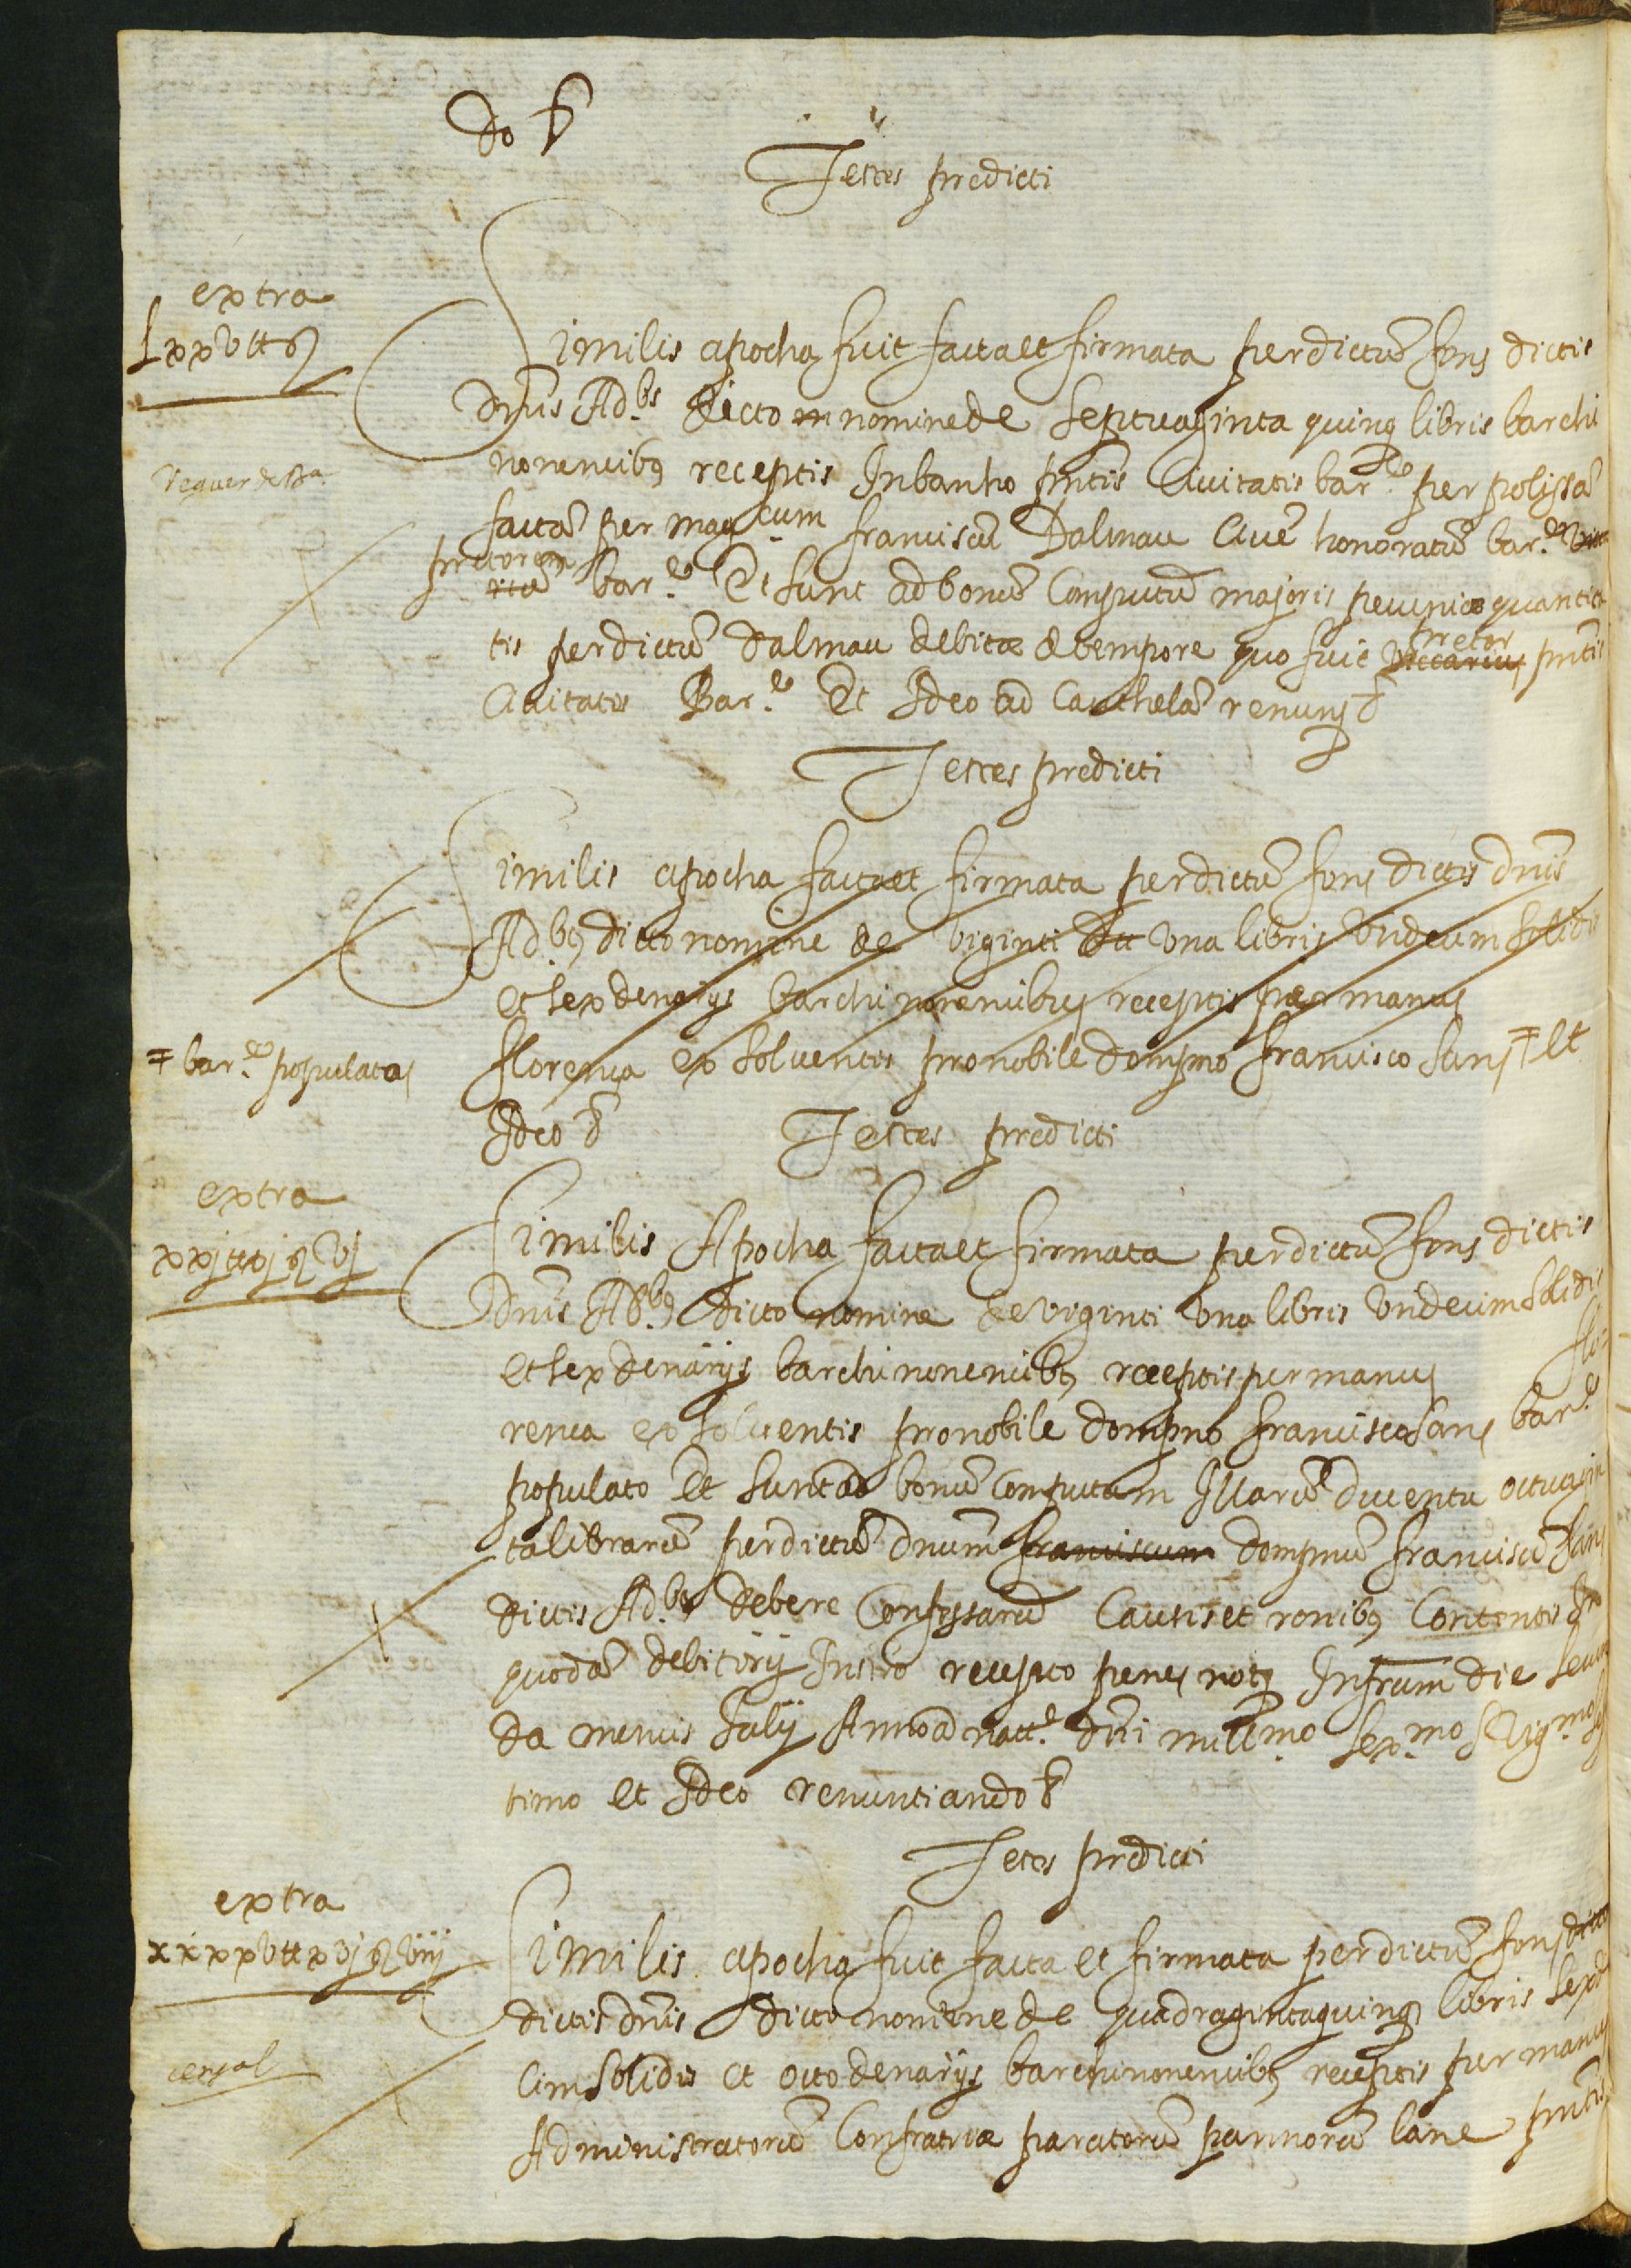 do &
Testes predicti
extra
Lxxv tt s
Similis apocha fuit facta et firmata per dictũ fons dictis
dnĩs Ad.bs dicto nomine de septuaginta quinq libris barchi
nonensibus receptis In banho pñtis Ciuitatis bar.e per polissã
factã per mag.cum franciscũ Dalmau Ciuẽ honoratũ bar.e
pretorem bar.e Et sunt ad bonũ Computũ majoris pecuniæ quantita
tis per dictũ dalmau debitæ de tempore quo fuit viccarius pretor pñtis
Ciuitatis Bar.e Et Ideo ad Cauthelã renuns &
Testes predicti
Similis apocha facta et firmata per dictũ fons dictis dnĩs
Ad.bs dicto nomine de viginti una libris Undecim solidis
et sex denarijs barchinonensibus receptis per manus
florensa exsolventis pro nobile dompno francisco sans ǂ Et
ǂ bar.e populatas
Ideo &
Testes predicti
extra
xxj tt xj s vj
Similis Apocha facta et firmata per dictũ fons dictis
dnĩs Ab.bs dicto nomine de viginti una libris Undecim solidis
et sex denarijs barchinonensibs receptis per manus flo=
rensa exsolventis pro nobile dompno francisco sans bar.e
populato Et sunt ad bonũ Computum Illarũ ducentu octuagin
ta librarũ per dictũ dnum franciscum dompnũ franciscũ sans
dictis Ad.bs debere Confessarũ Causis et ronibs Contentis In
quodã debitorij Instro recepto penes nots Infrum die secun
da mensis Julij Anno a natt.e dnĩ mill.mo sex.mo Vig.mo sep
timo et Ideo renuntiando &
Testes predicti
extra
xxxxv tt xvj s viij
censal
Similis apocha fuit facta et firmata per dictũ fons
dictis dnĩs dicto nomine de quadraginta quinq libris sexd
cim solidis et octo denarijs barchinonensibs receptis per manus
Administratorũ Confratriæ paratorũ pannorũ lane pñtis